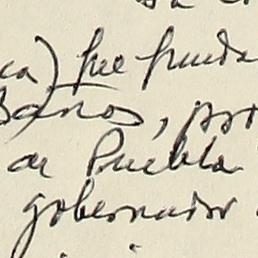 ca) fue funda
Baños, pro
de Puebla
gobernador